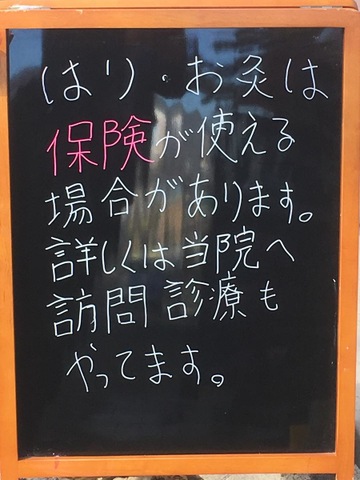 はり・お灸は
保険が使える
場合があります。
詳しくは当院へ
訪問診療も
やってます。